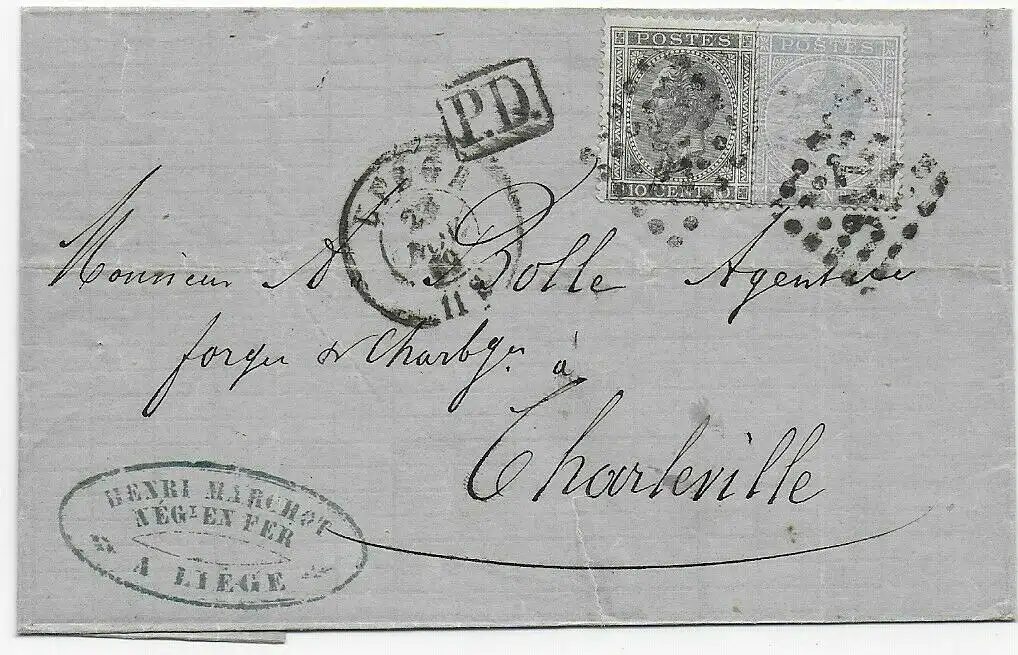 POSTES POSTES
10 CENT. 10
P.D.
LIÉGE
11
Monsieur A. Bolle Agent
forges &
à
Charleville
HENRI MARCHOT
NÉGT EN FER
A LIÉGE